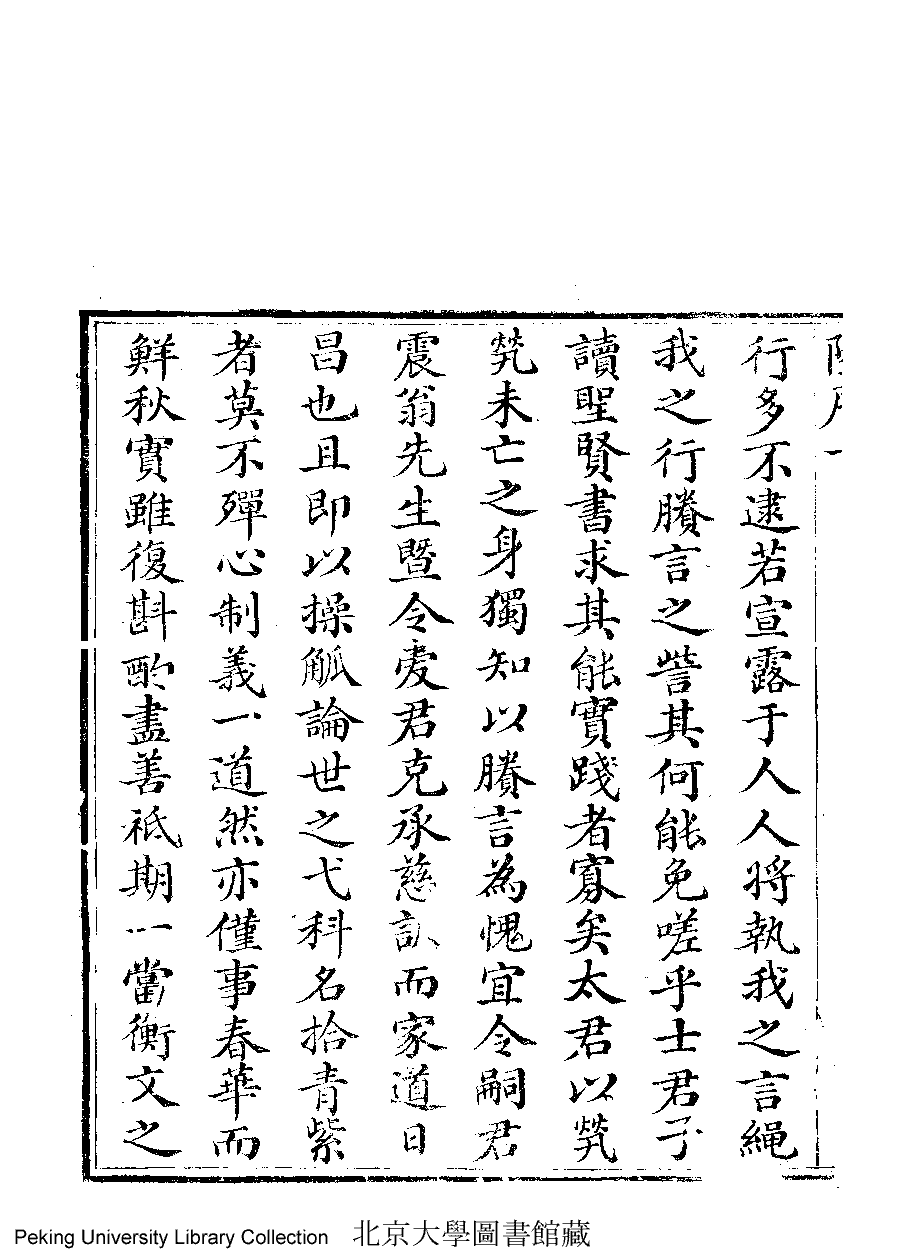 行多不逮若宣露于人人將執我之言繩
我之行賸言之訾其何能免嗟乎士君子
讀聖賢書求其能實踐者寡矣太君以煢
煢未亡之身獨知以賸言為愧宜令嗣君
震翁先生暨令麦君克承慈訓而家道日
昌也且即以操觚論世之弋科名拾青紫
者莫不殫心制義一道然亦僅事春華而
鮮秋實雖復斟酌盡善祗期一當衡文之
Peking University Library Collection 北京大學圖書館藏